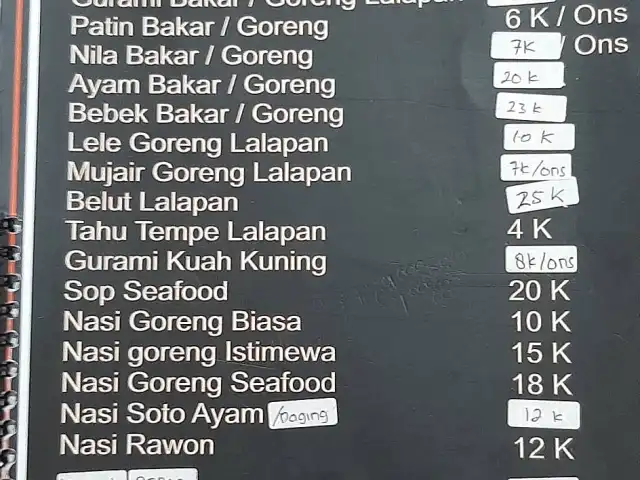 Gurami Bakar / Goreng Lalapan
Patin Bakar / Goreng 6 K / Ons
Nila Bakar / Goreng 7K / Ons
Ayam Bakar / Goreng 20 k
Bebek Bakar / Goreng 23 k
Lele Goreng Lalapan 10 K
Mujair Goreng Lalapan 7k/ons
Belut Lalapan 25 K
Tahu Tempe Lalapan 4 K
Gurami Kuah Kuning 8k/ons
Sop Seafood 20 K
Nasi Goreng Biasa 10 K
Nasi goreng Istimewa 15 K
Nasi Goreng Seafood 18 K
Nasi Soto Ayam /Daging 12 k
Nasi Rawon 12 K